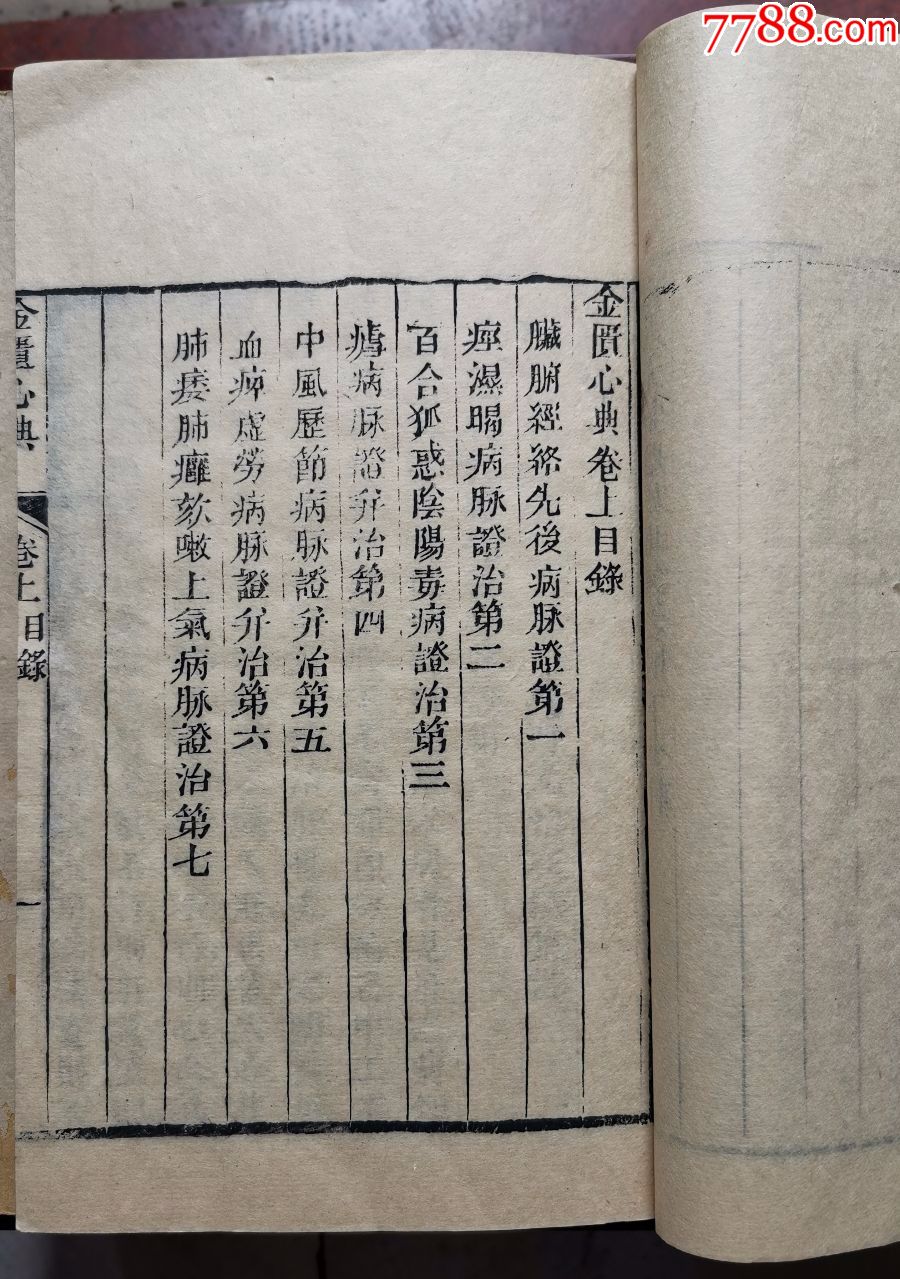 7788.com
金匱心典卷上目錄
臟腑經絡先後病脉證第一
痙濕暍病脉證治第二
百合狐惑陰陽毒病證治第三
瘧病脉證幷治第四
中風歷節病脉證幷治第五
血痺虛勞病脉證幷治第六
肺痿肺癰欬嗽上氣病脉證治第七
金匱心典
卷上目錄
一